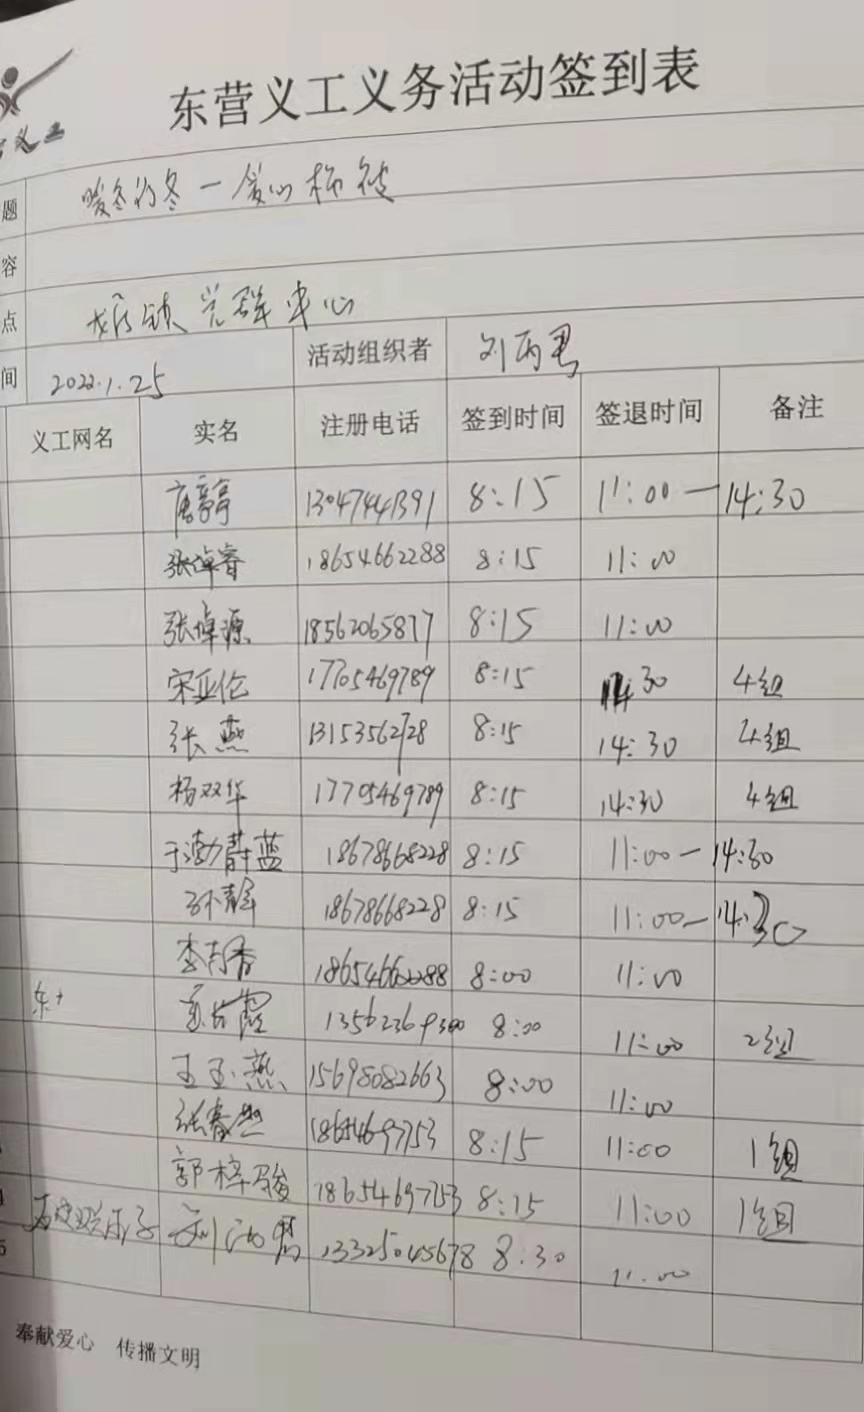 东营义工义务活动签到表
义工
题 暖冬行冬一爱心棉被
容
点 党群中心
间 2022.1.25 活动组织者 刘丙君
义工网名 实名 注册电话 签到时间 签退时间 备注
13047441391 8:15 11:00 — 14:30
张焯睿 18654662288 8:15 11:00
张焯源 18562065877 8:15 11:00
宋亚伦 17705469789 8:15 14:30 4组
张燕 13153562728 8:15 14:30 4组
杨双华 17705469789 8:15 14:30 4组
于渤蔚蓝 18678668228 8:15 11:00 — 14:30
孙静 18678668228 8:15 11:00 — 14:30
李春香 18654662288 8:00 11:00
13562369300 8:00 11:00 2组
王玉燕 15698082663 8:00 11:00
张春燕 18654697753 8:15 11:00 1组
郭梓骏 18654697753 8:15 11:00 1组
5 13325045678 8:30 11:00
奉献爱心 传播文明